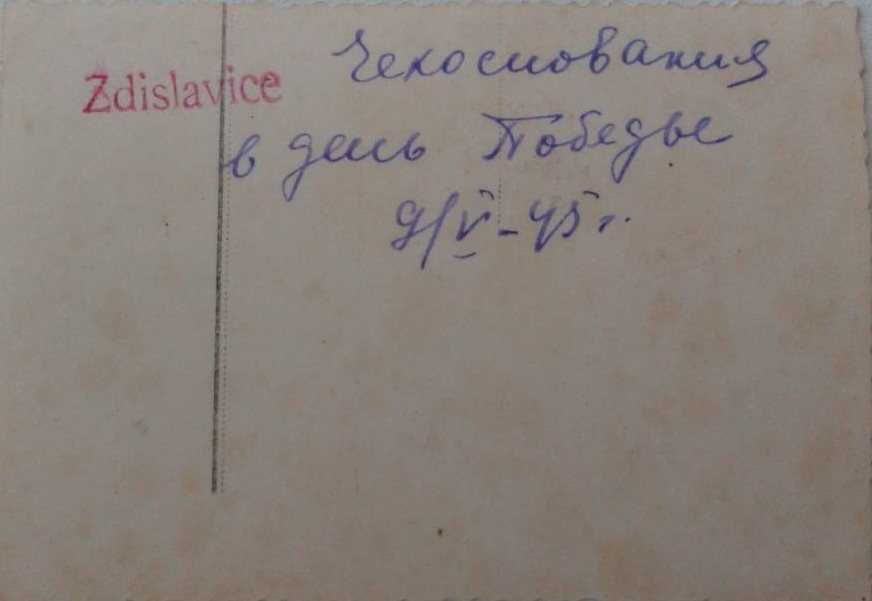 Zdislavice
Чехословакия
в день Победы
9/V-45 г.